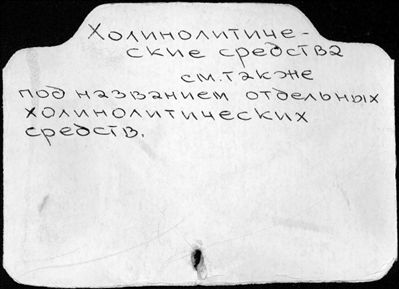 Холинолитиче-
ские средства
см. также
под названием отдельных
холинолитических
средств.